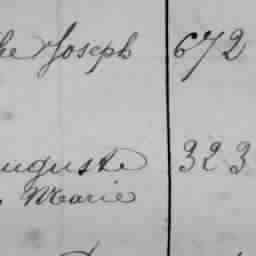 he Joseph 672
uguste 323
Marie